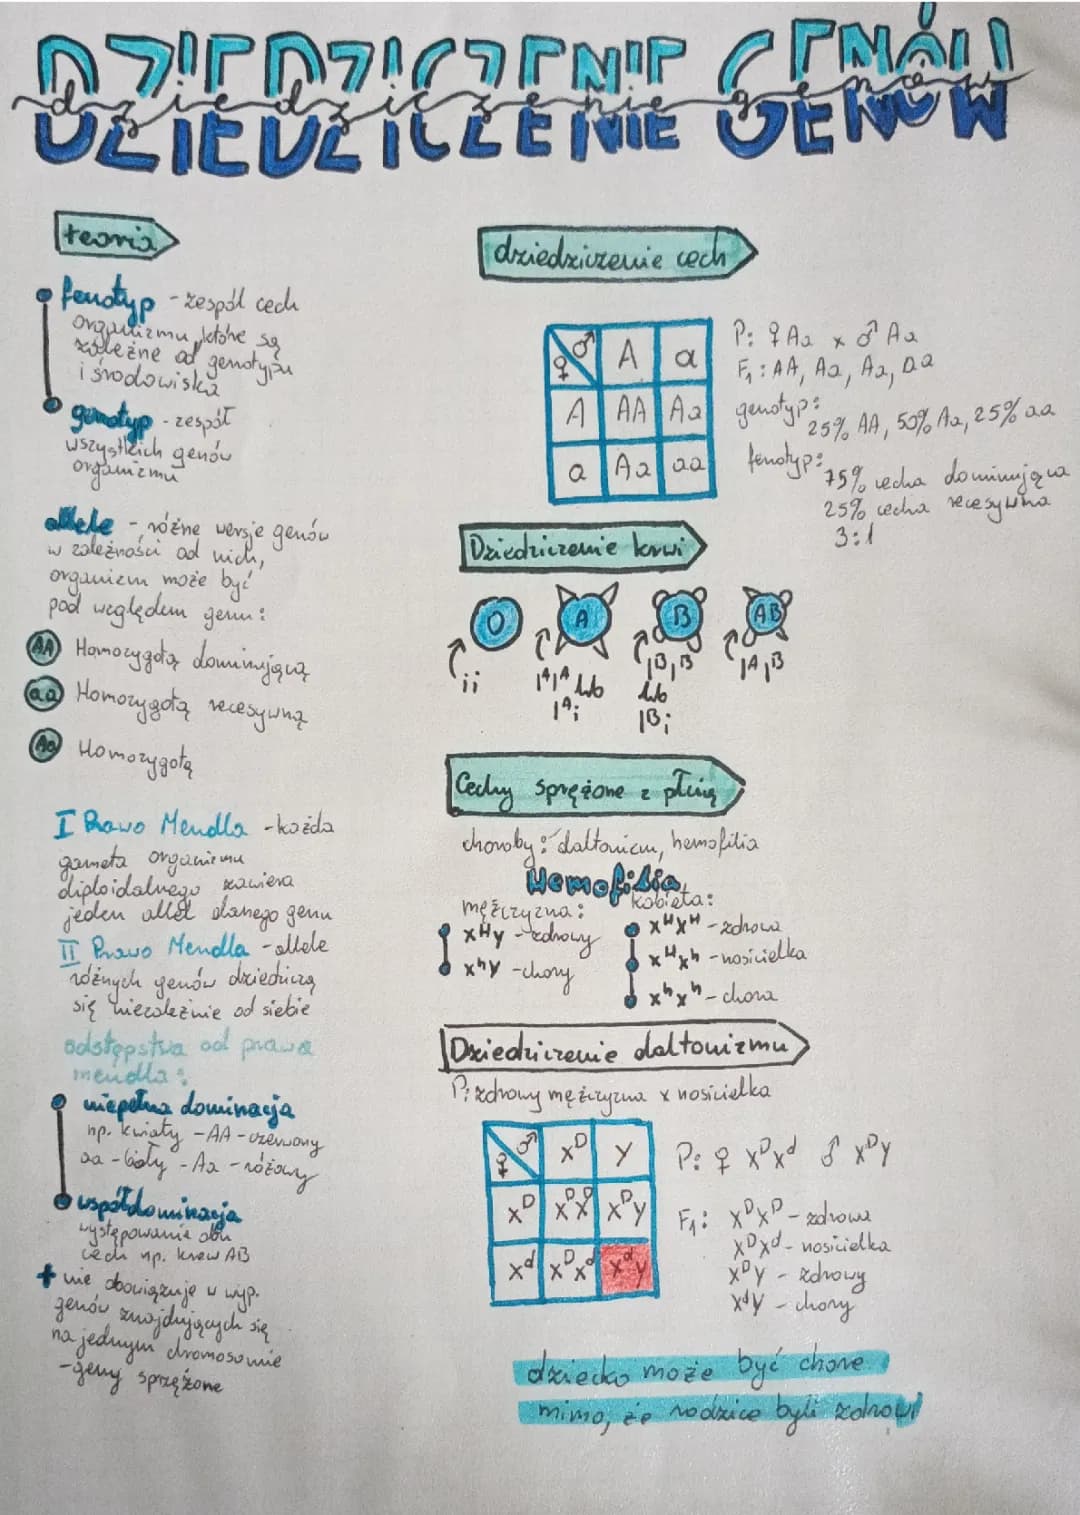 DZIEDZICZENIE GENÓW
dziedziczenie genów
teoria
fenotyp - zespół cech
organizmu, które są
zależne od genotypu
i środowiska
genotyp - zespół
wszystkich genów
organizmu
allele - różne wersje genów
w zależności od nich,
organizm może być
pod względem genu:
AA Homozygotą dominującą
aa Homozygotą recesywną
Aa Homozygotą
I Prawo Mendla - każda
gameta organizmu
diploidalnego zawiera
jeden allel danego genu
II Prawo Mendla - allele
różnych genów dziedziczą
się niezależnie od siebie
odstępstwa od prawa
mendla:
niepełna dominacja
np. kwiaty - AA - czerwony
aa - biały - Aa - różowy
współdominacja
występowanie obu
cech np. krew AB
+ nie obowiązuje w wyp.
genów znajdujących się
na jednym chromosomie
- geny sprzężone
dziedziczenie cech
♀ ♂ A a
A AA Aa
a Aa aa
P: ♀ Aa x ♂ Aa
F₁: AA, Aa, Aa, aa
genotyp:
25% AA, 50% Aa, 25% aa
fenotyp:
75% cecha dominująca
25% cecha recesywna
3:1
Dziedziczenie krwi
O A B AB
ii IᴬIᴬ lub IᴮIᴮ IᴬIᴮ
Iᴬi lub
Iᴮi
Cechy sprężone z płcią
choroby: daltonizm, hemofilia
Hemofilia
mężczyzna: kobieta:
XᴴY - zdrowy
XʰY - chory
XᴴXᴴ - zdrowa
XᴴXʰ - nosicielka
XʰXʰ - chora
Dziedziczenie daltonizmu
P: zdrowy mężczyzna x nosicielka
♀ ♂ Xᴰ Y
Xᴰ XᴰXᴰ XᴰY
Xᵈ XᴰXᵈ XᵈY
P: ♀ XᴰXᵈ ♂ XᴰY
F₁: XᴰXᴰ - zdrowa
XᴰXᵈ - nosicielka
XᴰY - zdrowy
XᵈY - chory
dziecko może być chore
mimo, że rodzice byli zdrowi